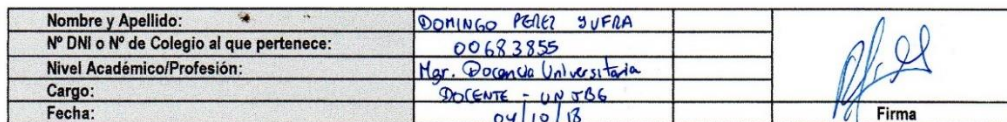 Nombre y Apellido: DOMINGO PEREZ YUFRA
Nº DNI o Nº de Colegio al que pertenece: 00683855
Nivel Académico/Profesión: Mgr. Docencia Universitaria
Cargo: DOCENTE - UNJBG
Fecha: 04/10/18
Firma